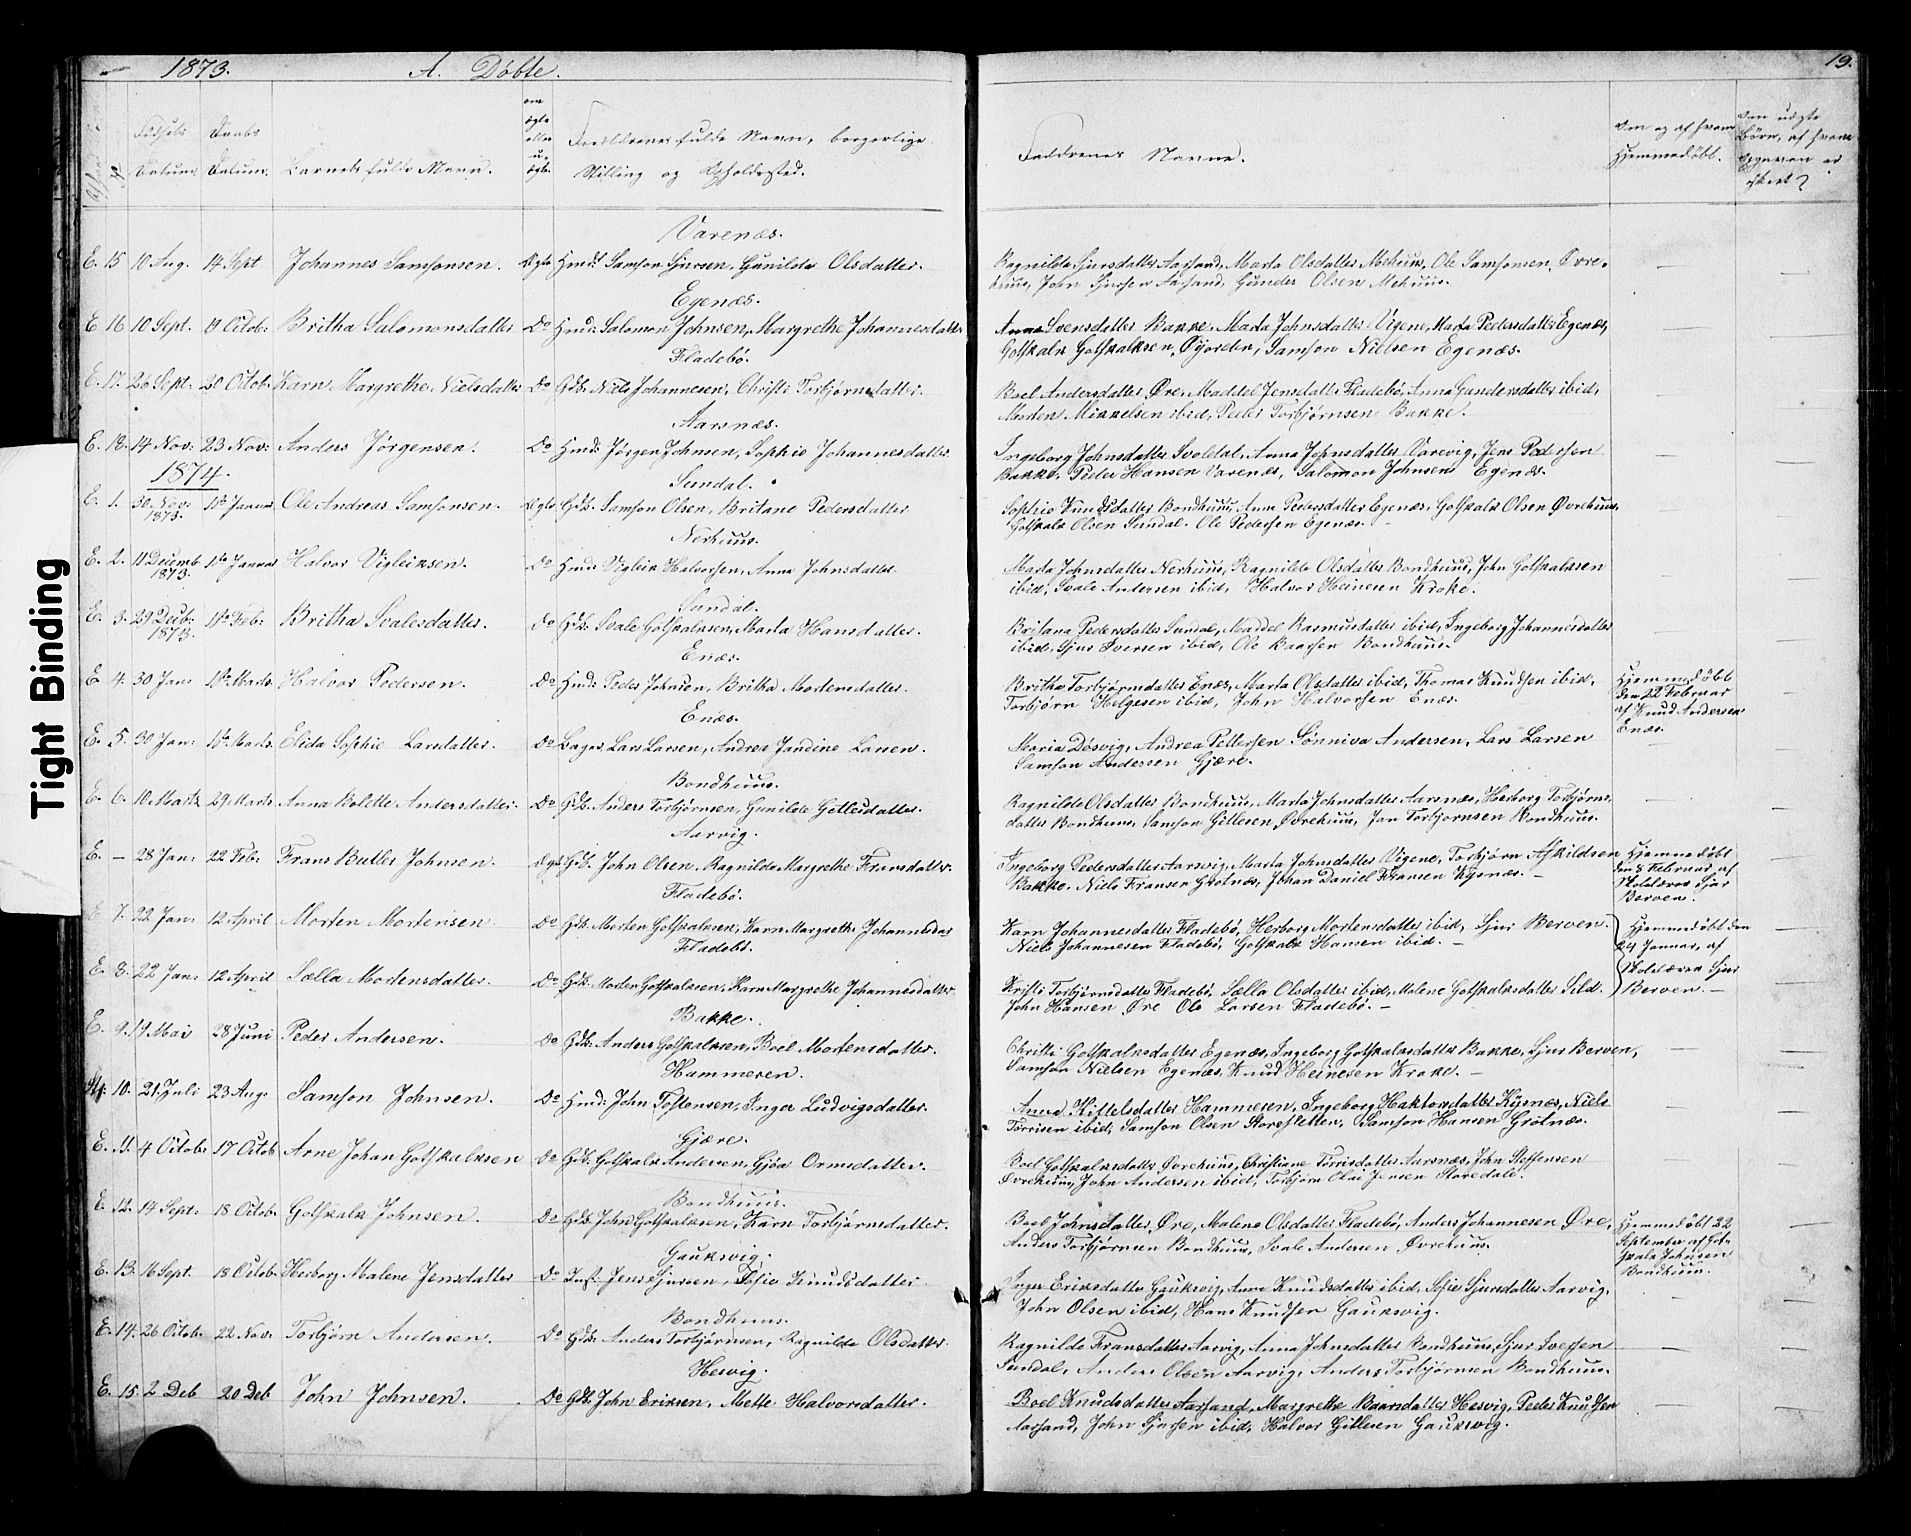 1873. A. Döbte. 19.
Fødsels Datum. Daabs Datum. Barnets fulde Navn. om ægte eller uægte. Forældrenes fulde Navn, borgerlige Stilling og Opholdssted. Faddrenes Navne. Om og af hvem Hjemmedøbt. Om uægte Børn, af hvem Opgaven er skeet?
Varenæs.
E. 15 10 Aug. 14 Sept Johannes Samsonsen. Ægte Hmd: Samson Sjursen, Gunilde Olsdatter. Ragnilde Sjursdatter Aarsand, Marta Olsdatter Mehuus, Ole Samsonsen, Øvre-
huus, John Sjursen Aarsand, Gunder Olsen Mehuus.
Egenæs.
E 16 10 Sept. 19 Octob: Britha Salomonsdatter Do Hmd: Salomon Johnsen, Margrethe Johannesdatter Anna Svensdatter Bakke, Marta Johnsdatter Vigene, Marta Pedersdatter Egenæs,
Gotskalk Gotskalksen, Samson Nielsen Egenæs.
Fladebö.
E. 17. 26 Sept: 20 Octob. Karn Margrethe Nielsdatter Do Gdb. Niels Johannesen, Christi Torbjörnsdatter. Boel Andersdatter Øre, Maddel Jensdatter Fladebö, Anna Gundersdatter ibid,
Morten Mikkelsen ibid, Peder Torbjörnsen Bakke.
Aarsnæs.
E. 18. 14 Nov: 23 Nov: Anders Jörgensen. Do Hmd: Jörgen Johnsen, Sophie Johannesdatter. Ingeborg Johnsdatter Svoldal, Anna Johnsdatter Varevig, Jens Pedersen
Bakke, Peder Hansen Varenæs, Salomon Johnsen Egenæs.
1874.
Sundal.
E. 1. 30 Nov: 1873. 1ste Januar Ole Andreas Samsonsen. Ægte Gdb. Samson Olsen, Britane Pedersdatter Sophie Knudsdatter Bondhuus, Anna Pedersdatter Egenæs, Gotskalk Olsen Øvrehuus,
Gotskalk Olsen Sundal. Ole Pedersen Egenæs. -
Nerhuus.
E. 2. 11 Decemb 1873. 1ste Januar Halvor Vigleiksen. Do Hmd: Vigleik Halvorsen, Anna Johnsdatter Marta Johnsdatter Nerhuus, Ragnilde Olsdatter Bondhuus, John Gotskalksen
ibid, Svale Andersen ibid, Halvor Heinesen Kroke.
Sundal.
E. 3. 29 Deb: 1873. 1ste Feb: Britha Svalesdatter. Do Gdb. Svale Gotskalksen, Marta Hansdatter. Britana Pedersdatter Sundal, Maddel Rasmusdatter ibid, Ingeborg Johannesdatter
ibid, Sjur Iversen ibid, Ole Baarsen Bondhuus.
Enæs.
E 4. 30 Jan: 1ste Marts. Halvor Pedersen. Do Hmd: Peder Johnsen, Britha Mortensdatter. Britha Torbjörnsdatter Enæs, Marta Olsdatter ibid, Thomas Knudsen ibid,
Torbjörn Helgesen ibid, John Halvorsen Enæs. Hjemmedøbt den 22 Februar af Knud Andersen Enæs.
Enæs.
E. 5. 30 Jan: 1ste Marts. Elida Sophie Larsdatter. Do Bager Lars Larsen, Andrea Jandine Larsen. Maria Døsvig, Andrea Pettersen Sønniva Andersen, Lars Larsen
Samson Andersen Gjære.
Bondhuus.
E. 6. 10 Marts 29 Marts Anna Bolette Andersdatter. Do Gdb. Anders Torbjörnsen, Gunilde Gittesdatter. Ragnilde Olsdatter Bondhuus, Marta Johnsdatter Aarsnæs, Herborg Torbjörns-
datter Bondhuus, Samson Gittesen Øvrehuus, Jon Torbjornsen Bondhuus.
Aarvig.
E. - 28 Jan: 22 Feb: Frans Butler Johnsen. Ægt Gdb. John Olsen, Ragnilde Margrethe Fransdatter. Ingeborg Pedersdatter Aarsvig, Marta Johnsdatter Vigene, Torbjörn Askildsen
Bakke, Niels Fransen Grotnæs, Johan Daniel Fransen Kysnæs. - Hjemmedøbt den 8 Februar af Skolelærer Sjur Berven.
Fladebö.
E 7. 22 Jan: 12 April Morten Mortensen Do Gdb. Morten Gotskalksen, Karn Margrethe Johannesdat Karn Johannesdatter Fladebö, Herborg Mortensdatter ibid, Sjur Berven.
Niels Johannesen Fladebö, Gotskalk Hansen ibid. - Hjemmedøbt den 24 Januar, af Skolelærer Sjur Berven. -
Fladebö.
E. 8. 22 Jan: 12 April Sælla Mortensdatter. Do Gdb. Morten Gotskalksen, Karn Margrethe Johannesdatter Kristi Torbjörnsdatter Fladebö, Sælla Olsdatter ibid, Malene Gotskalksdatter Sild.
John Hansen Øre Ole Larsen Fladebö. -
Bakke.
E. 9. 19 Mai 28 Juni Peder Andersen. Do Gdb. Anders Gotskalksen, Boel Mortensdatter. Christi Gotskalksdatter Egenæs, Ingeborg Gotskalksdatter Bakke, Sjur Berven,
Samson Nielsen Egenæs, Knud Heinesen Kroke. -
Hammeren.
10. 21 Juli 23 Aug: Samson Johnsen. Do Hmd: John Tostensen, Inger Ludvigsdatter. Anna Kittelsdatter Hammeren, Ingeborg Haktorsdatter Kysnæs, Niels
Torrisen ibid, Samson Olsen Storesletten, Samson Hansen Grotnæs.
Gjære.
E. 11. 4 Octob: 17 Octob Arne Johan Gotskalksen Do Gdb. Gotskalk Andersen, Gjöa Ormsdatter. Boel Gotskalksdatter Øvrehuus, Christiane Torrisdatter Aarsnæs, John Steffensen
Øvrehuus, John Andersen ibid, Torbjörn Olai Jensen Storedale.
Bondhuus.
E. 12. 14 Sept: 18 Octob. Gotskalk Johnsen. Do Gdb. John Gotskalksen, Karn Torbjörnsdatter. Boel Johnsdatter Øre, Malene Olsdatter Fladebö, Anders Johannesen Øre,
Anders Torbjörnsen Bondhuus, Svale Andersen Øvrehuus. Hjemmedøbt 22 September af Gotskalk Johnsen Bondhuus.
Gauksvig.
E. 13. 16 Sept. 18 Octob. Herborg Malene Jensdatter Do Inst: Jens Sjursen, Sofie Knudsdatter. Inger Eriksdatter Gauksvig, Anne Knudsdatter ibid, Sofie Sjursdatter Aarvig,
John Olsen ibid, Hans Knudsen Gauksvig.
Bondhuus.
E. 14. 26 Octob. 22 Nov. Torbjörn Andersen. Do Gdb. Anders Torbjörnsen, Ragnilde Olsdatter. Ragnilde Fransdatter Aarvig, Anna Johnsdatter Bondhuus, Sjur Ivessen
Sundal, Anders Olsen Aarvig, Anders Torbjörnsen Bondhuus.
Hesvig
E. 15. 2 Deb 20 Deb John Johnsen. Do Gdb. John Eriksen, Mette Halvorsdatter. Boel Knudsdatter Aarsand, Margrethe Baarsdatter Hesvig, Peder Knudsen
Aarsand, John Sjursen ibid, Halvor Gittesen Gauksvig.
Tight Binding